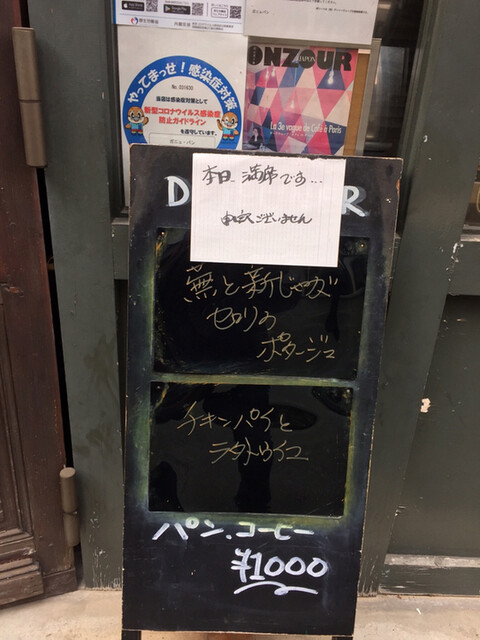 やってまっせ！感染症対策
No. 031630
当店は感染症対策として
新型コロナウイルス感染症
防止ガイドライン
を遵守しています。
ボミュ・パン
BONZOUR
JAPON
La 3e vague de Café à Paris
本日 満席です...
申し訳ございません
D
R
蕪と新じゃが
セロリの
ポタージュ
チキンパイと
ラタトゥイユ
パン、コーヒー
¥1000